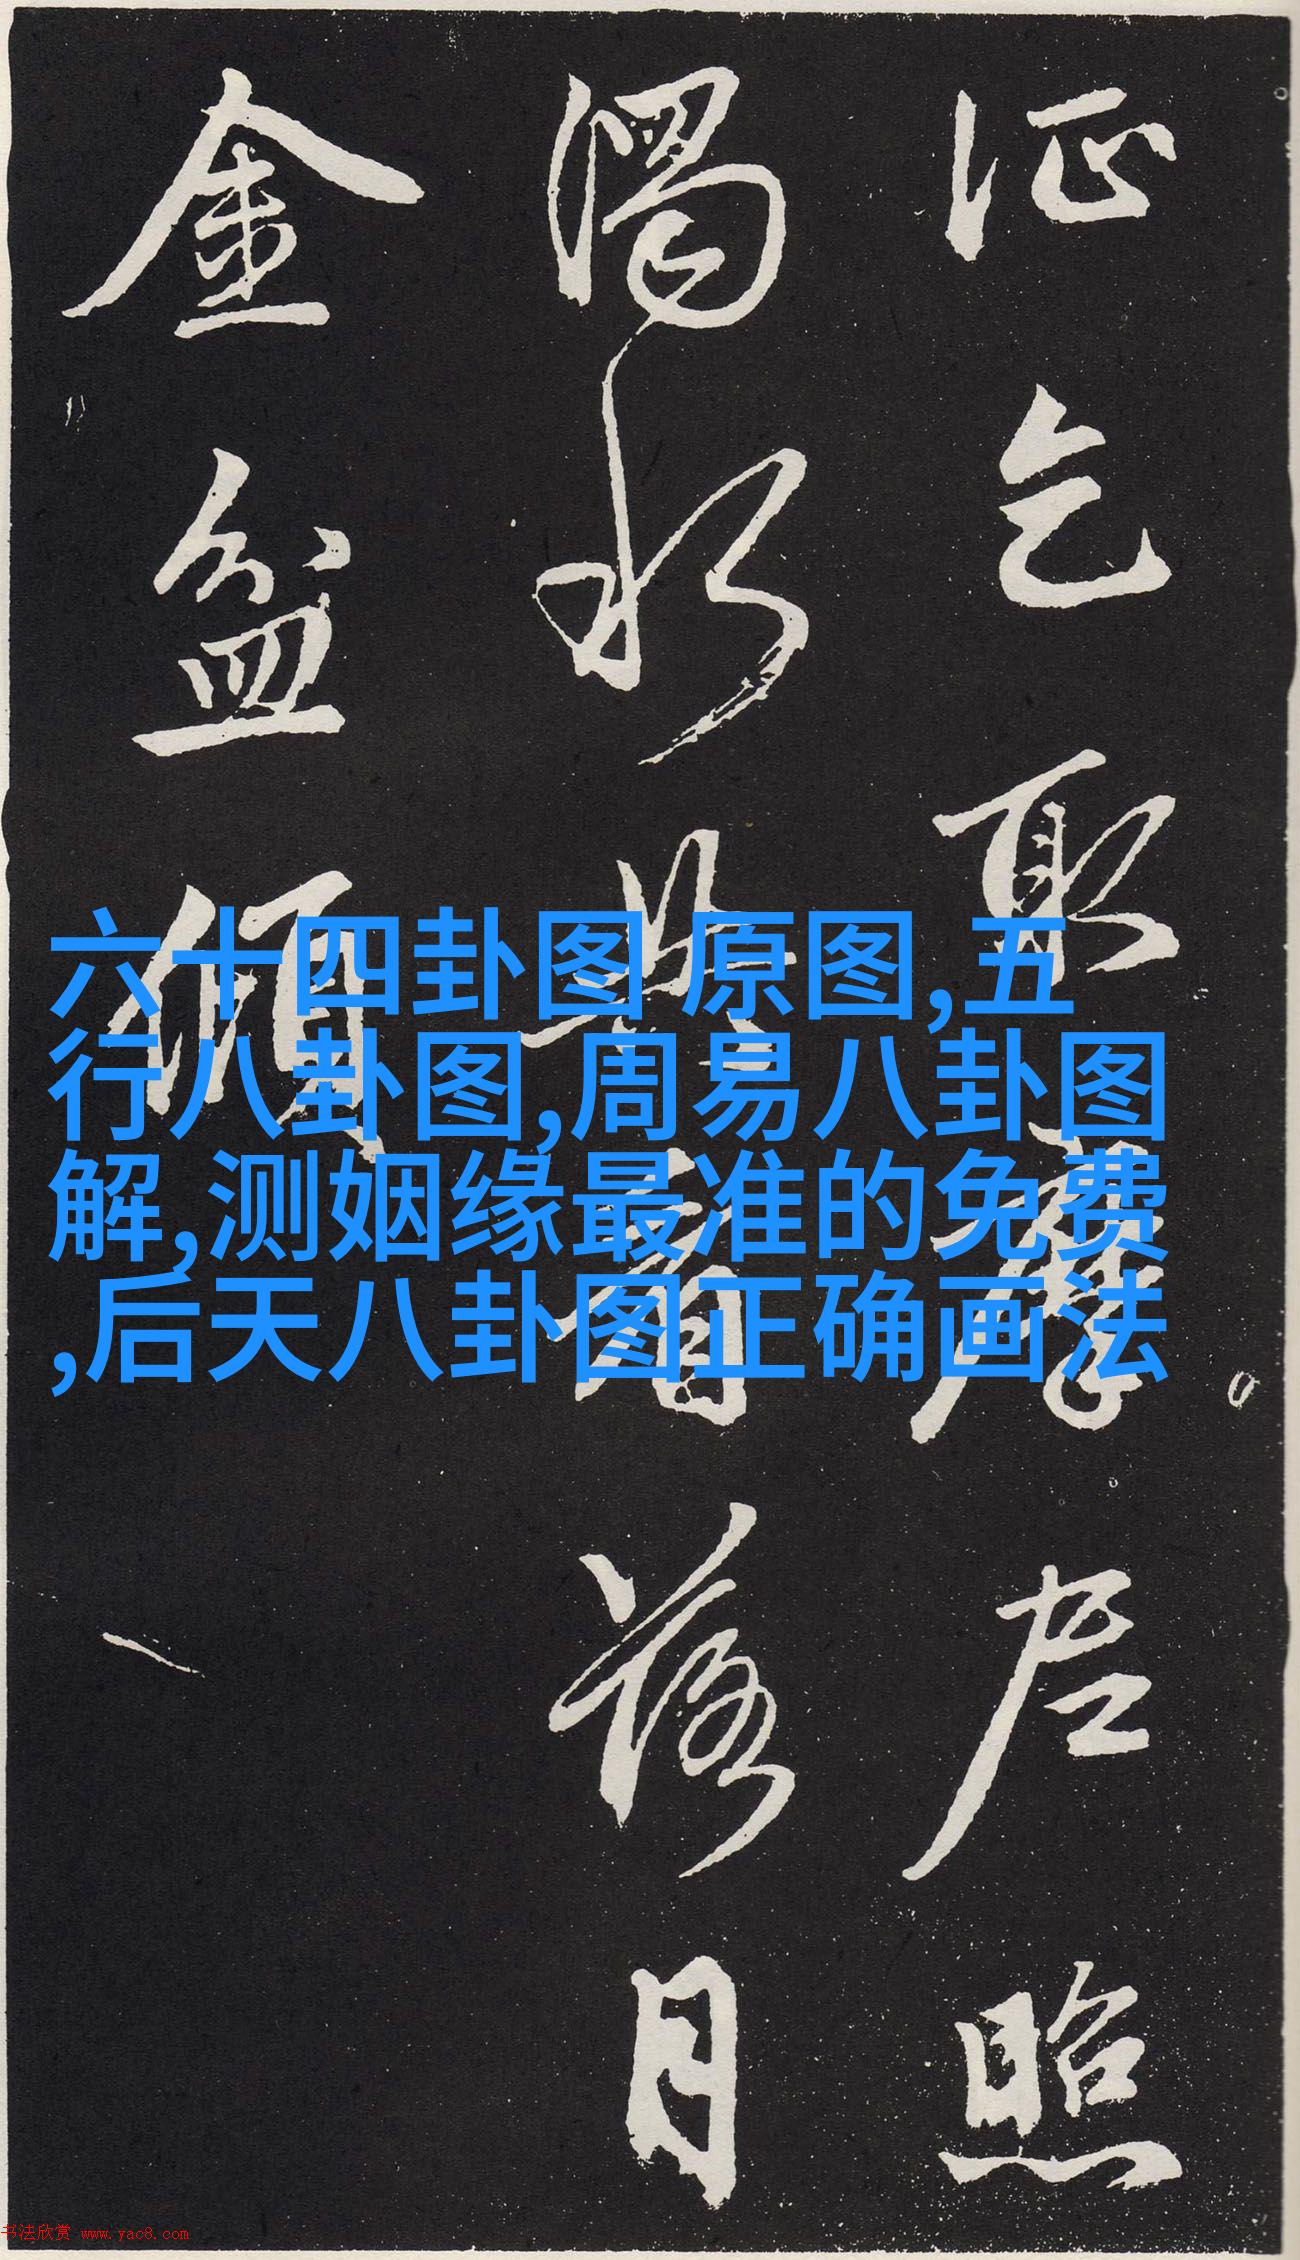 乞取摩尼照
濁水共看落月
金盆傾
六十四卦图 原图,五
行八卦图,周易八卦图
解,测姻缘最准的免费
,后天八卦图正确画法
书法欣赏 www.yac8.com